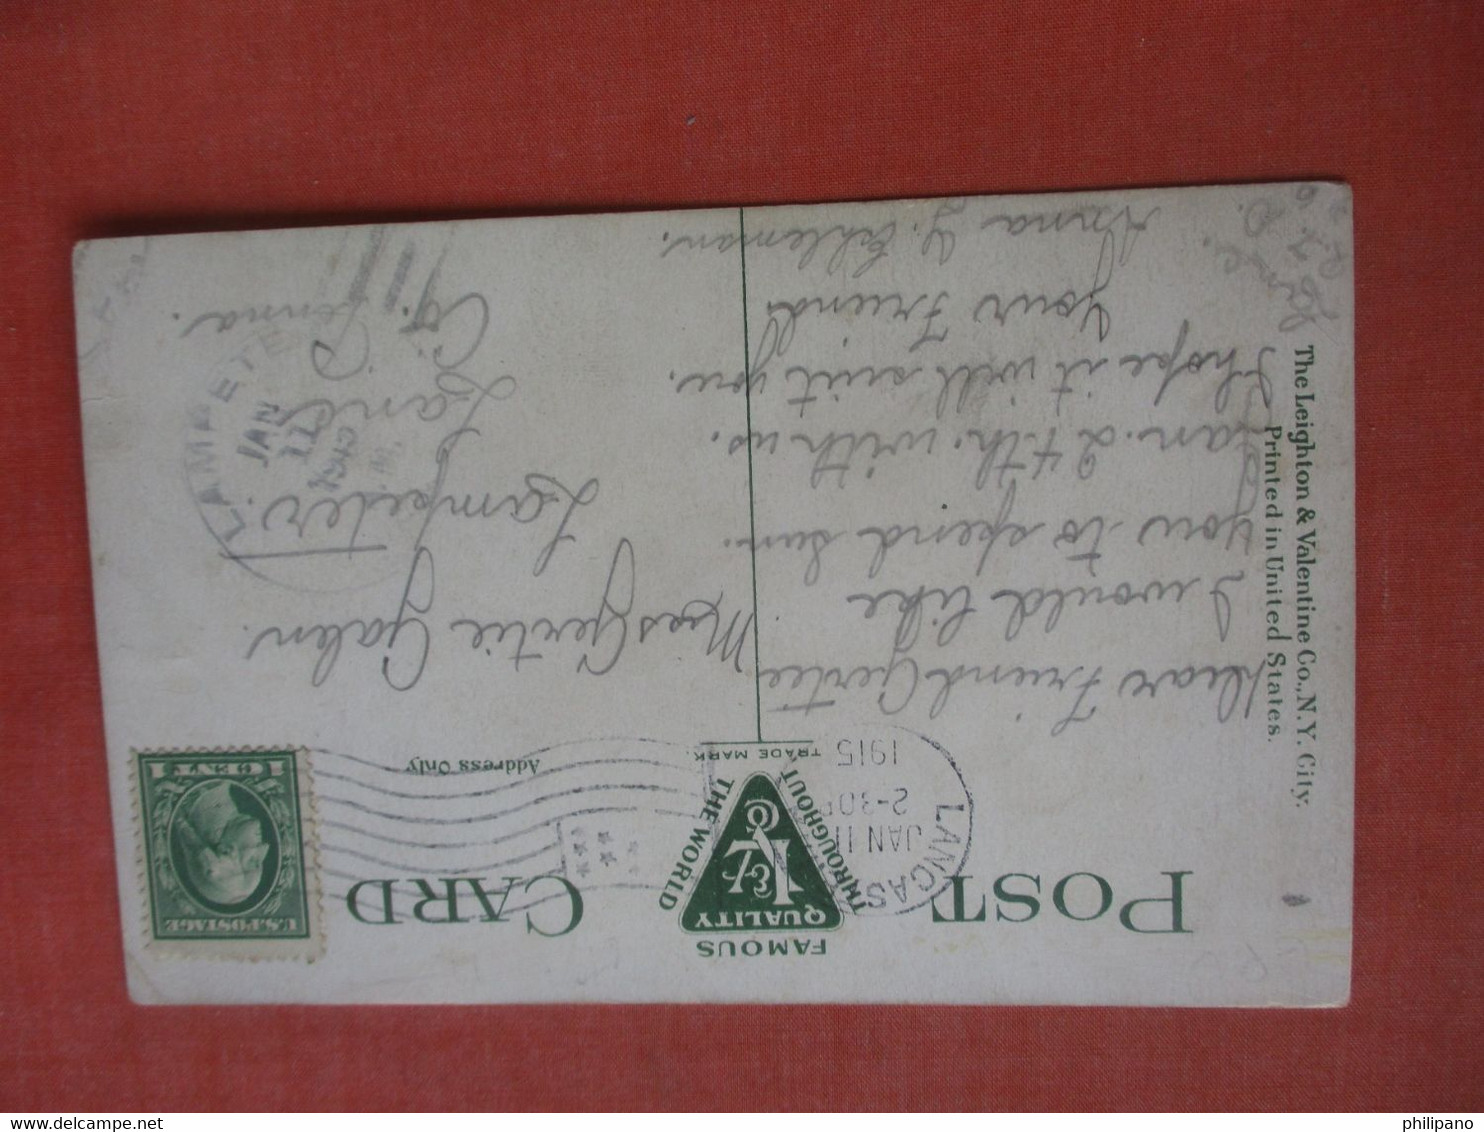 POST CARD
FAMOUS
QUALITY
L&V Co
THROUGHOUT
THE WORLD
TRADE MARK.
Address Only
The Leighton & Valentine Co., N.Y. City.
Printed in United States.
U.S. POSTAGE
1 CENT 1
LANCAS
JAN 11
2-30P
1915
Dear Friend Gertie
I would like
you to spend Sun.
Jan. 24th. with us.
I hope it will suit you.
Your Friend.
Anna Y. Eshleman.
Miss Gertie Galen
Lampeter.
Lanc
Co. Penna.
LAMPETE
JAN
11
1915
philipano